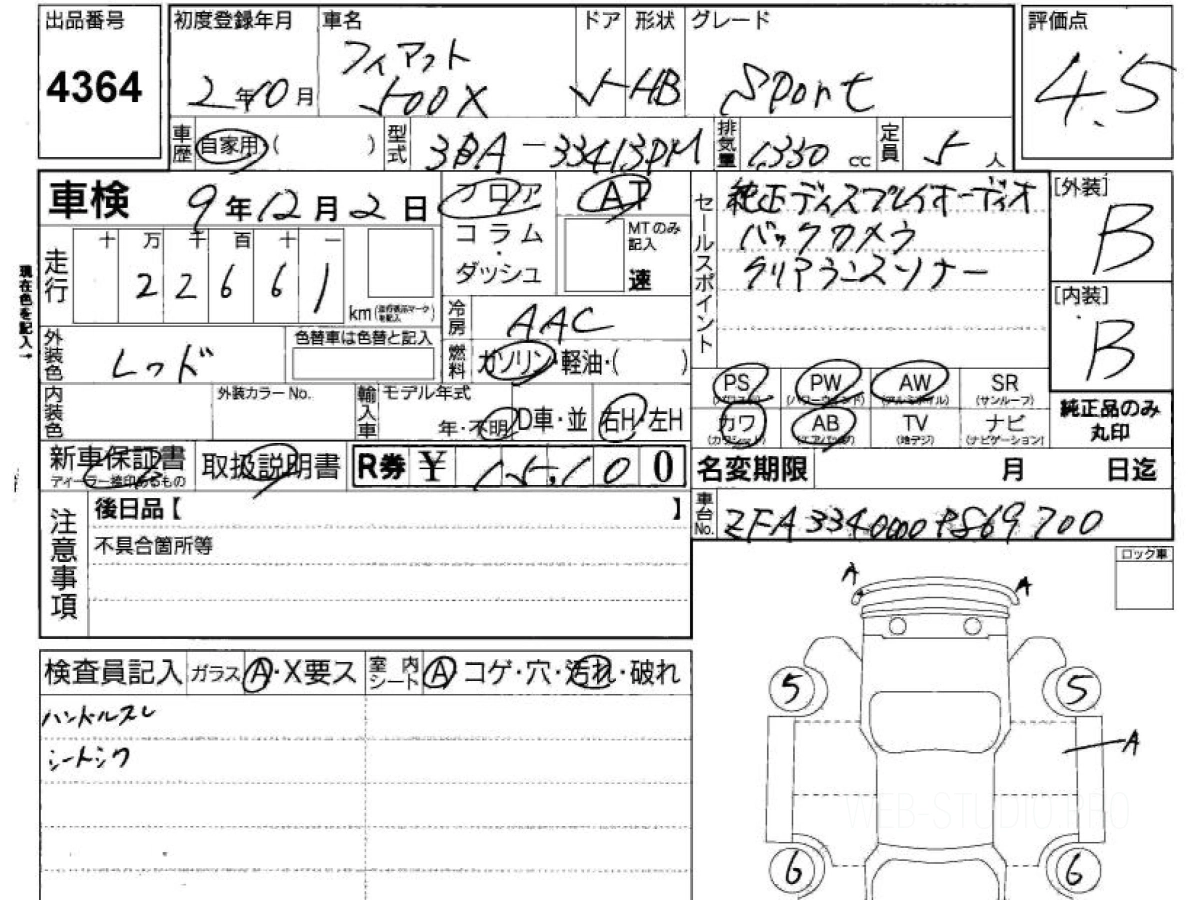 出品番号
4364
初度登録年月
2年10月
車名
フィアット
500X
ドア 形状
5 HB
グレード
Sport
評価点
4.5
車歴 自家用・( )
型式 3BA-33413PM
排気量 1,330 cc
定員 5 人
車検 9年12月2日
フロア AT
コラム・ダッシュ
MTのみ記入
速
セールスポイント
純正ディスプレイオーディオ
バックカメラ
クリアランスソナー
[外装]
B
[内装]
B
現在色を記入→
走行
十 万 千 百 十 一
2 2 6 6 1
km(走行表示マークを記入)
冷房 AAC
燃料 ガソリン・軽油・( )
外装色 レッド
色替車は色替と記入
内装色
外装カラーNo.
輸入車
モデル年式
年・不明
D車・並
右H・左H
PS (パワステ)
PW (パワーウインド)
AW (アルミホイル)
SR (サンルーフ)
カワ (カワシート)
AB (エアバッグ)
TV (地デジ)
ナビ (ナビゲーション)
純正品のみ丸印
新車保証書
ディーラー捺印あるもの
取扱説明書
R券 ¥ 15,100
名変期限 月 日迄
車台No. ZFA3340000P869700
注意事項
後日品【 】
不具合箇所等
ロック車
検査員記入
ガラス A・X要ス
室内シート A コゲ・穴・汚れ・破れ
ハンドルスレ
シートシワ
A
A
5
5
A
6
6
WEB-STUDIO.PRO